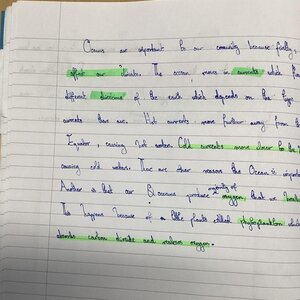 Oceans are important to our community because firstly,
affect our climate. The ocean moves in currents which
different directions of the earth which depends on the
currents there are. Hot currents move further away from the
Equator, causing hot waters. Cold currents move closer to the
causing cold waters. There are other reasons the Ocean is important
Another is that our 5 oceans produce majority of oxygen, that we
This happens because of a little plants called phytoplankton
absorbs carbon dioxide and realeses oxygen.